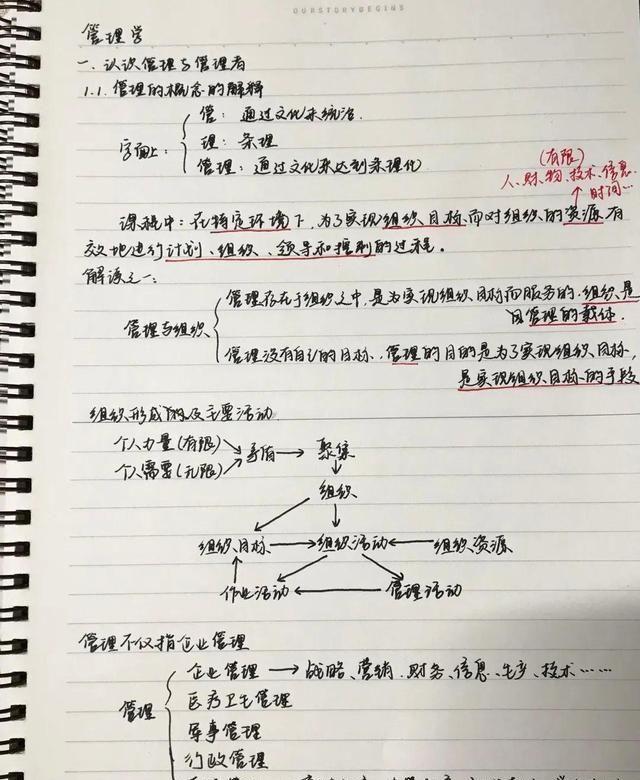 OURSTORYBEGINS
管理学
一.认识管理与管理者
1.1.管理的概念的解释
字面上:
管:通过文化来统治.
理:条理
管理:通过文化来达到条理化
(有限)
人、财、物、技术、信息
时间…
课程中:在特定环境下,为了实现组织目标而对组织的资源有
效地进行计划、组织、领导和控制的过程.
解读之一:
管理与组织
管理存在于组织之中,是为实现组织目标而服务的.组织是
管理的载体.
管理没有自己的目标,管理的目的是为了实现组织目标,
是实现组织目标的手段
组织形成及主要活动
个人力量(有限)
矛盾→聚集
个人需要(无限)
组织
组织目标→组织活动←组织资源
作业活动←管理活动
管理不仅指企业管理
管理
企业管理→战略、营销.财务、信息、生产、技术……
医疗卫生管理
军事管理
行政管理